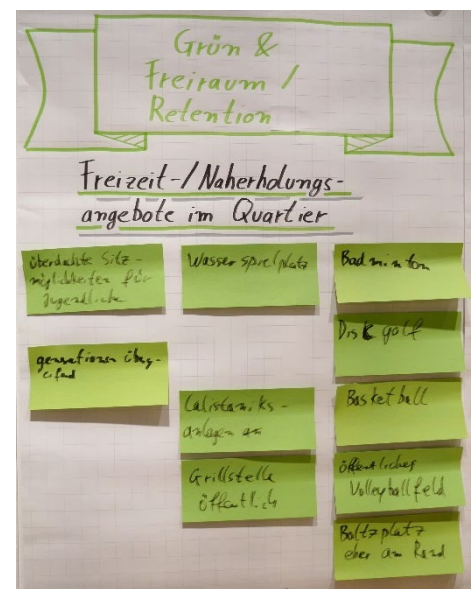 Grün &
Freiraum /
Retention
Freizeit-/Naherholungs-
angebote im Quartier
überdachte Sitz-
möglichkeiten für
Jugendliche
generationen überg-
eifend
Wasserspielplatz
Calistaniks-
anlagen an
Grillstelle
öffentlich
Badminton
Disk golf
Basketball
öffentliches
Volleyballfeld
Boltzplatz
eher am Rand